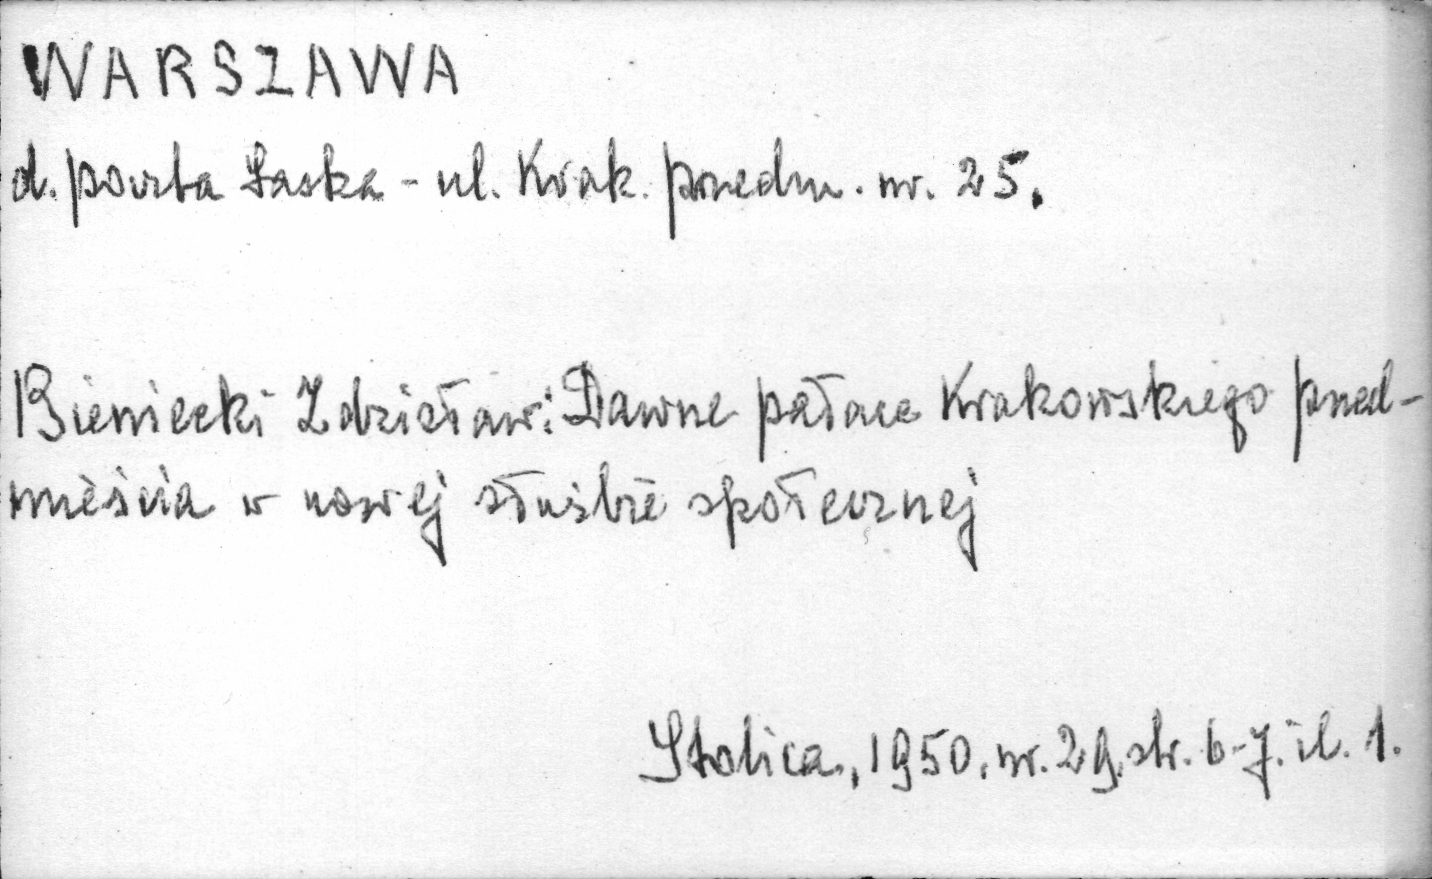 WARSZAWA
d. poczta Saska - ul. Krak. przedm. nr. 25.
Bieniecki Zdzisław: Dawne pałace Krakowskiego przed-
mieścia w nowej służbie społecznej
Stolica, 1950. nr. 29. str. 6-7. il. 1.